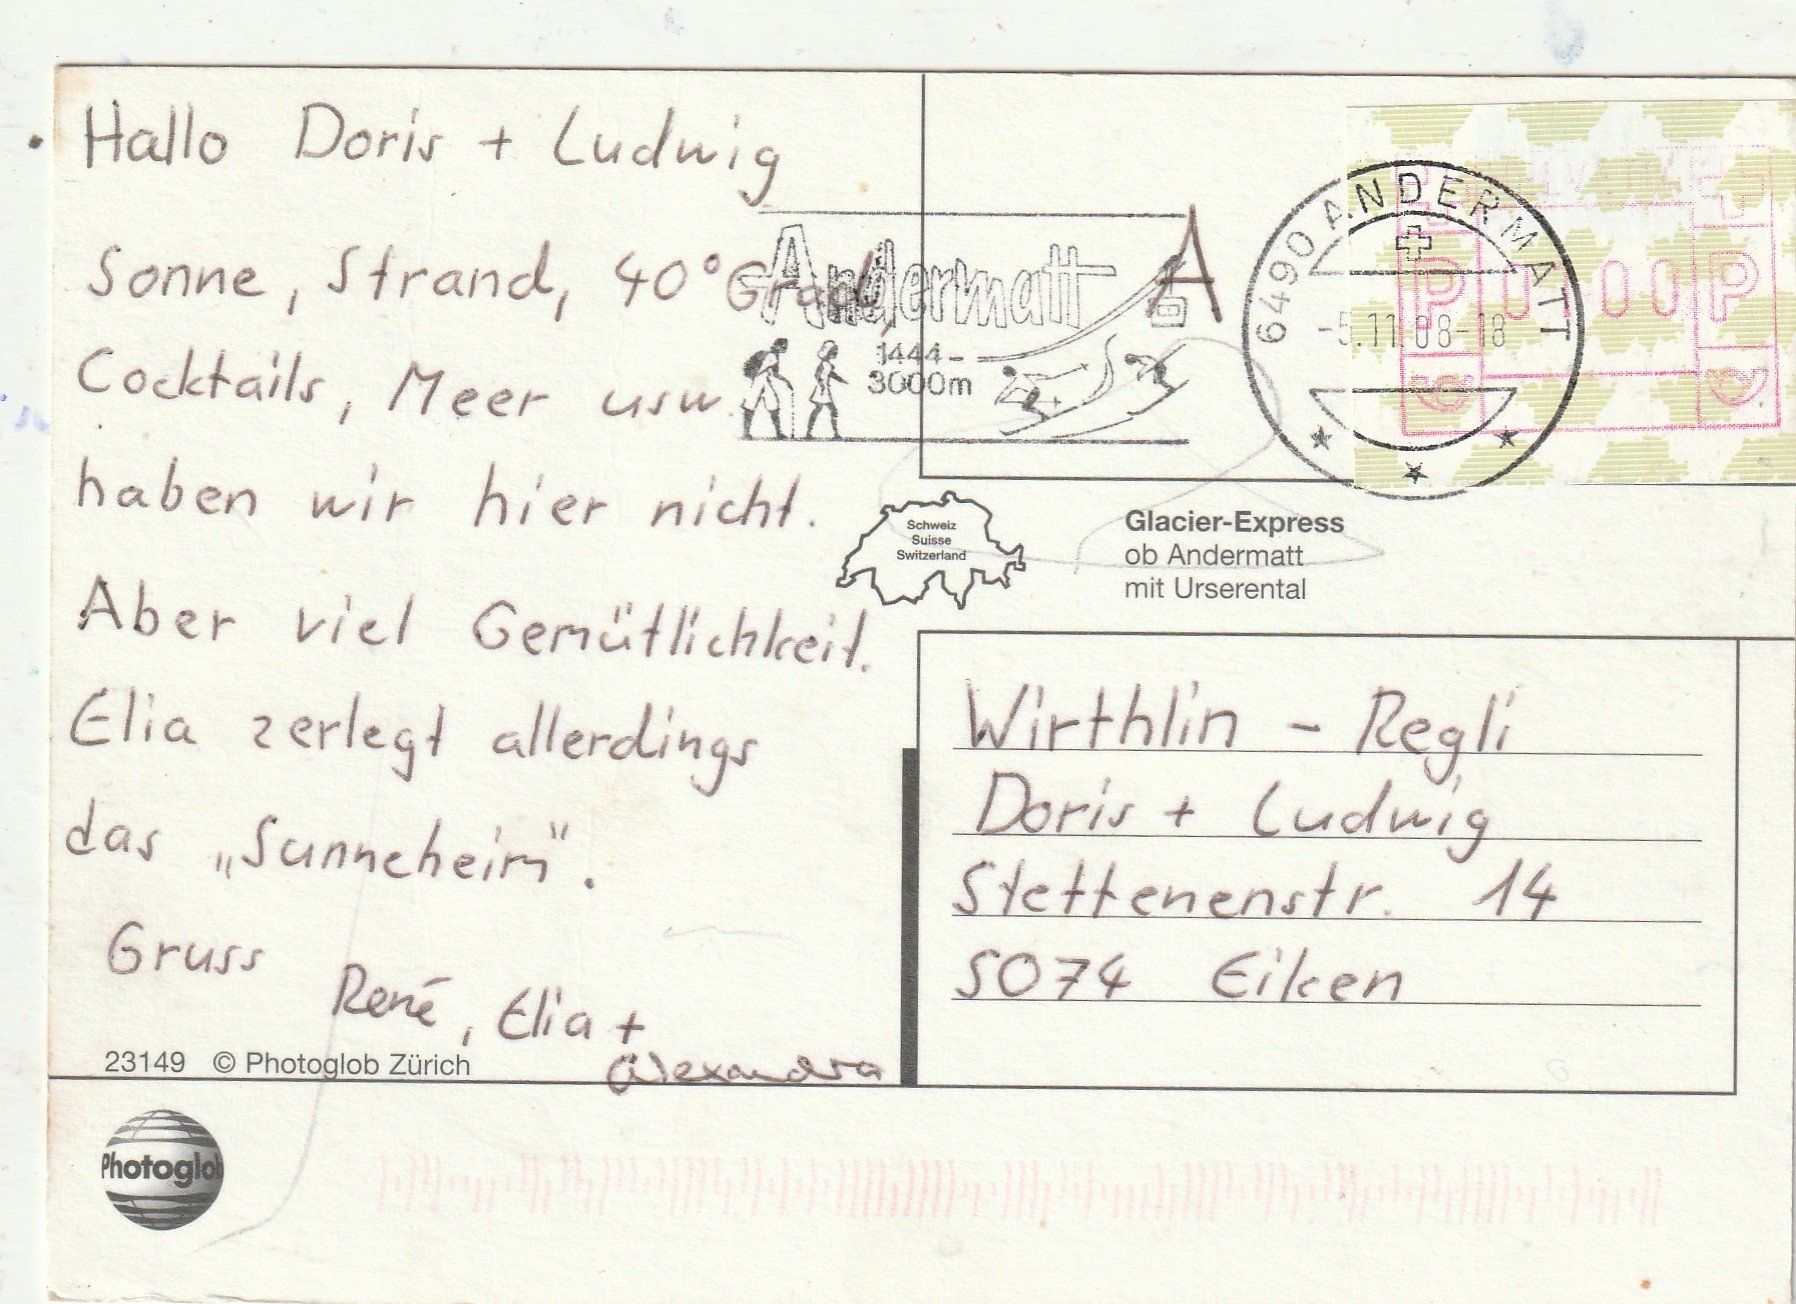 Hallo Doris + Ludwig
Sonne, Strand, 40° Grad,
Cocktails, Meer usw.
haben wir hier nicht.
Aber viel Gemütlichkeit.
Elia zerlegt allerdings
das „Sunneheim".
Gruss
René, Elia +
Alexandra
23149 © Photoglob Zürich
Photoglob
Andermatt
1444-
3000m
A
6490 ANDERMATT
-5.11.08-18
P 01.00 P
Schweiz
Suisse
Switzerland
Glacier-Express
ob Andermatt
mit Urserental
Wirthlin - Regli
Doris + Ludwig
Stettenenstr. 14
5074 Eiken